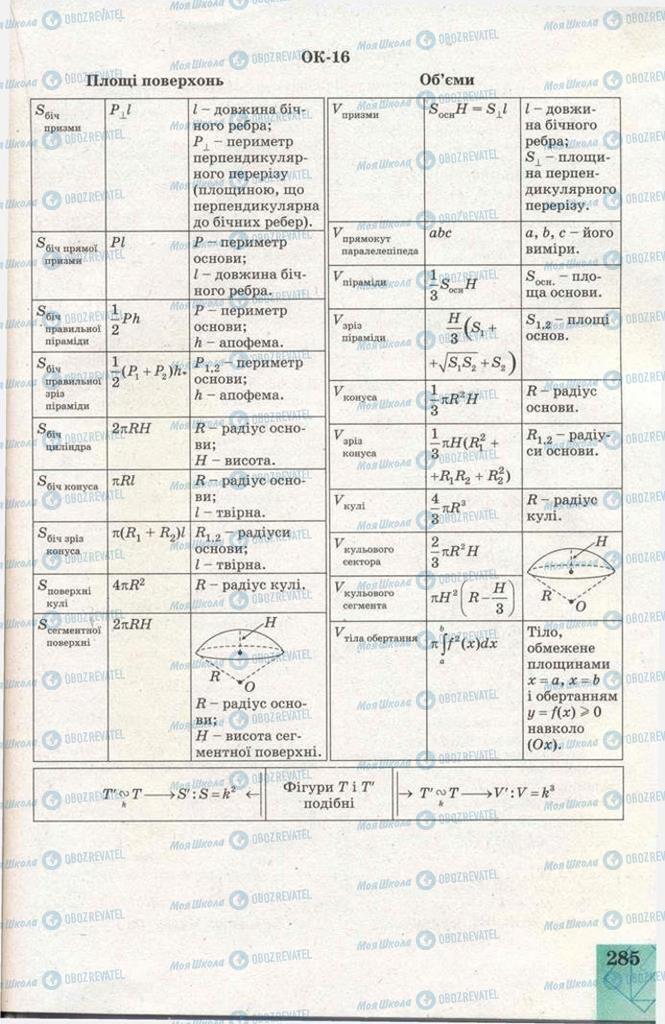 ОК-16
Площі поверхонь
S біч призми
P⊥l
l – довжина біч-
ного ребра;
P⊥ – периметр
перпендикуляр-
ного перерізу
(площиною, що
перпендикулярна
до бічних ребер).
S біч прямої
призми
Pl
P – периметр
основи;
l – довжина біч-
ного ребра.
S біч
правильної
піраміди
1/2 Ph
P – периметр
основи;
h – апофема.
S біч
правильної
зріз
піраміди
1/2 (P₁ + P₂)h.
P₁,₂ – периметр
основи;
h – апофема.
S біч
циліндра
2πRH
R – радіус осно-
ви;
H – висота.
S біч конуса
πRl
R – радіус осно-
ви;
l – твірна.
S біч зріз
конуса
π(R₁ + R₂)l
R₁,₂ – радіуси
основи;
l – твірна.
S поверхні
кулі
4πR²
R – радіус кулі.
S сегментної
поверхні
2πRH
H
R
O
R – радіус осно-
ви;
H – висота сег-
ментної поверхні.
Об'єми
V призми
S осн H = S⊥l
l – довжи-
на бічного
ребра;
S⊥ – площи-
на перпен-
дикулярного
перерізу.
V прямокут
паралелепіпеда
abc
a, b, c – його
виміри.
V піраміди
1/3 S осн H
S осн. – пло-
ща основи.
V зріз
піраміди
H/3 (S₁ +
+√S₁S₂ + S₂)
S₁,₂ – площі
основ.
V конуса
1/3 πR²H
R – радіус
основи.
V зріз
конуса
1/3 πH(R₁² +
+R₁R₂ + R₂²)
R₁,₂ – радіу-
си основи.
V кулі
4/3 πR³
R – радіус
кулі.
V кульового
сектора
2/3 πR²H
V кульового
сегмента
πH²(R – H/3)
H
R
O
V тіла обертання
π∫ₐᵇ f²(x)dx
Тіло,
обмежене
площинами
x = a, x = b
і обертанням
y = f(x) ⩾ 0
навколо
(Ox).
T′ ∾ₖ T ⟶ S′ : S = k² ←
Фігури T і T′
подібні
→ T′ ∾ₖ T ⟶ V′ : V = k³
285
Моя Школа OBOZREVATEL